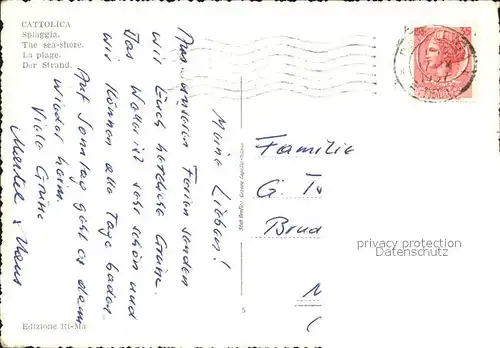 CATTOLICA
Spiaggia.
The sea-shore.
La plage.
Der Strand.
Meine Lieben!
Aus unseren Ferien senden
wir Euch herzliche Grüsse.
Das Wetter ist sehr schön und
wir können alle Tage baden.
Auf Sonntag geht es dann
wieder heim.
Viele Grüsse
Hans
Familie
G. T
Brud
privacy protection
Danomedia.com
5
Edizione Ri-Ma